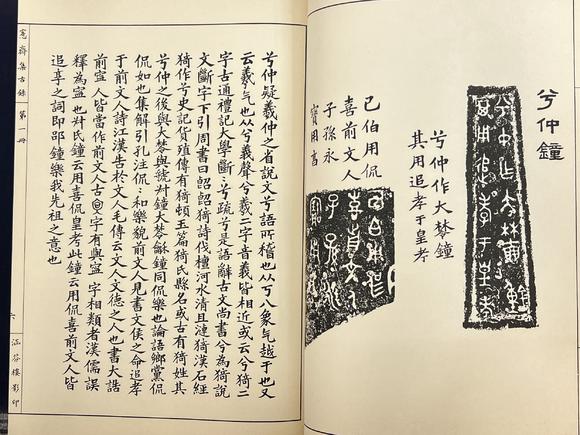 兮仲鐘
兮仲作大棽鐘
其用追孝于皇考
己伯用侃
喜前文人
子孫永
寶用亯
愙齋集古録
第一冊
兮仲疑羲仲之省說文兮語所稽也从丂八象气越亏也又
云羲气也从兮義聲兮羲二字音義皆相近或云兮猗二
字古通禮記大學斷斷兮疏兮是語辭古文尚書兮為猗說
文斷字下引周書曰猗詩伐檀河水清且漣猗漢石經
猗作兮史記貨殖傳有猗頓玉篇猗氏縣名或古有猗姓其
兮仲之後與大棽與虢叔鐘大棽龢鐘同侃樂也論語鄉黨侃
侃如也集解引孔注侃侃和樂貌前文人見書文侯之命追孝
于前文人詩江漢告于文人毛傳云文人文德之人也書大誥
前寍人皆當作前文人古字有與寍字相類者漢儒誤
釋為寍也叔氏鐘云用喜侃皇考此鐘云用侃喜前文人皆
追享之詞即邵鐘樂我先祖之意也
六
涵芬樓影印